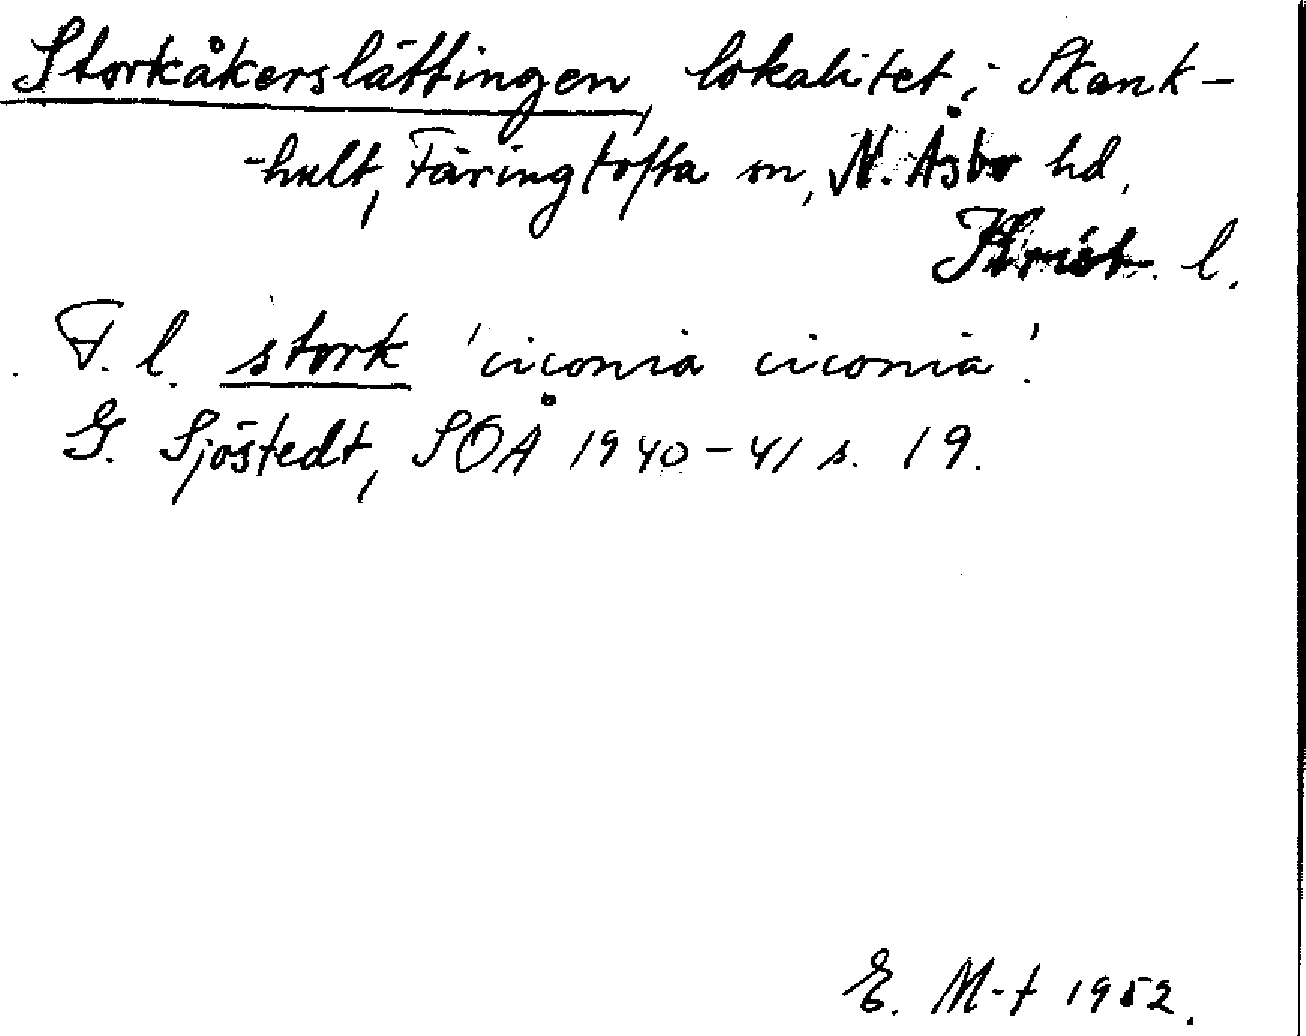 Storkåkerslättingen, lokalitet i Skank-
-hult, Färingtofta sn, N. Åsbo hd,
Krist. l.
F. l. stork 'ciconia ciconia'.
G. Sjöstedt, SOÅ 1940-41 s. 19.
E. M-t 1952.